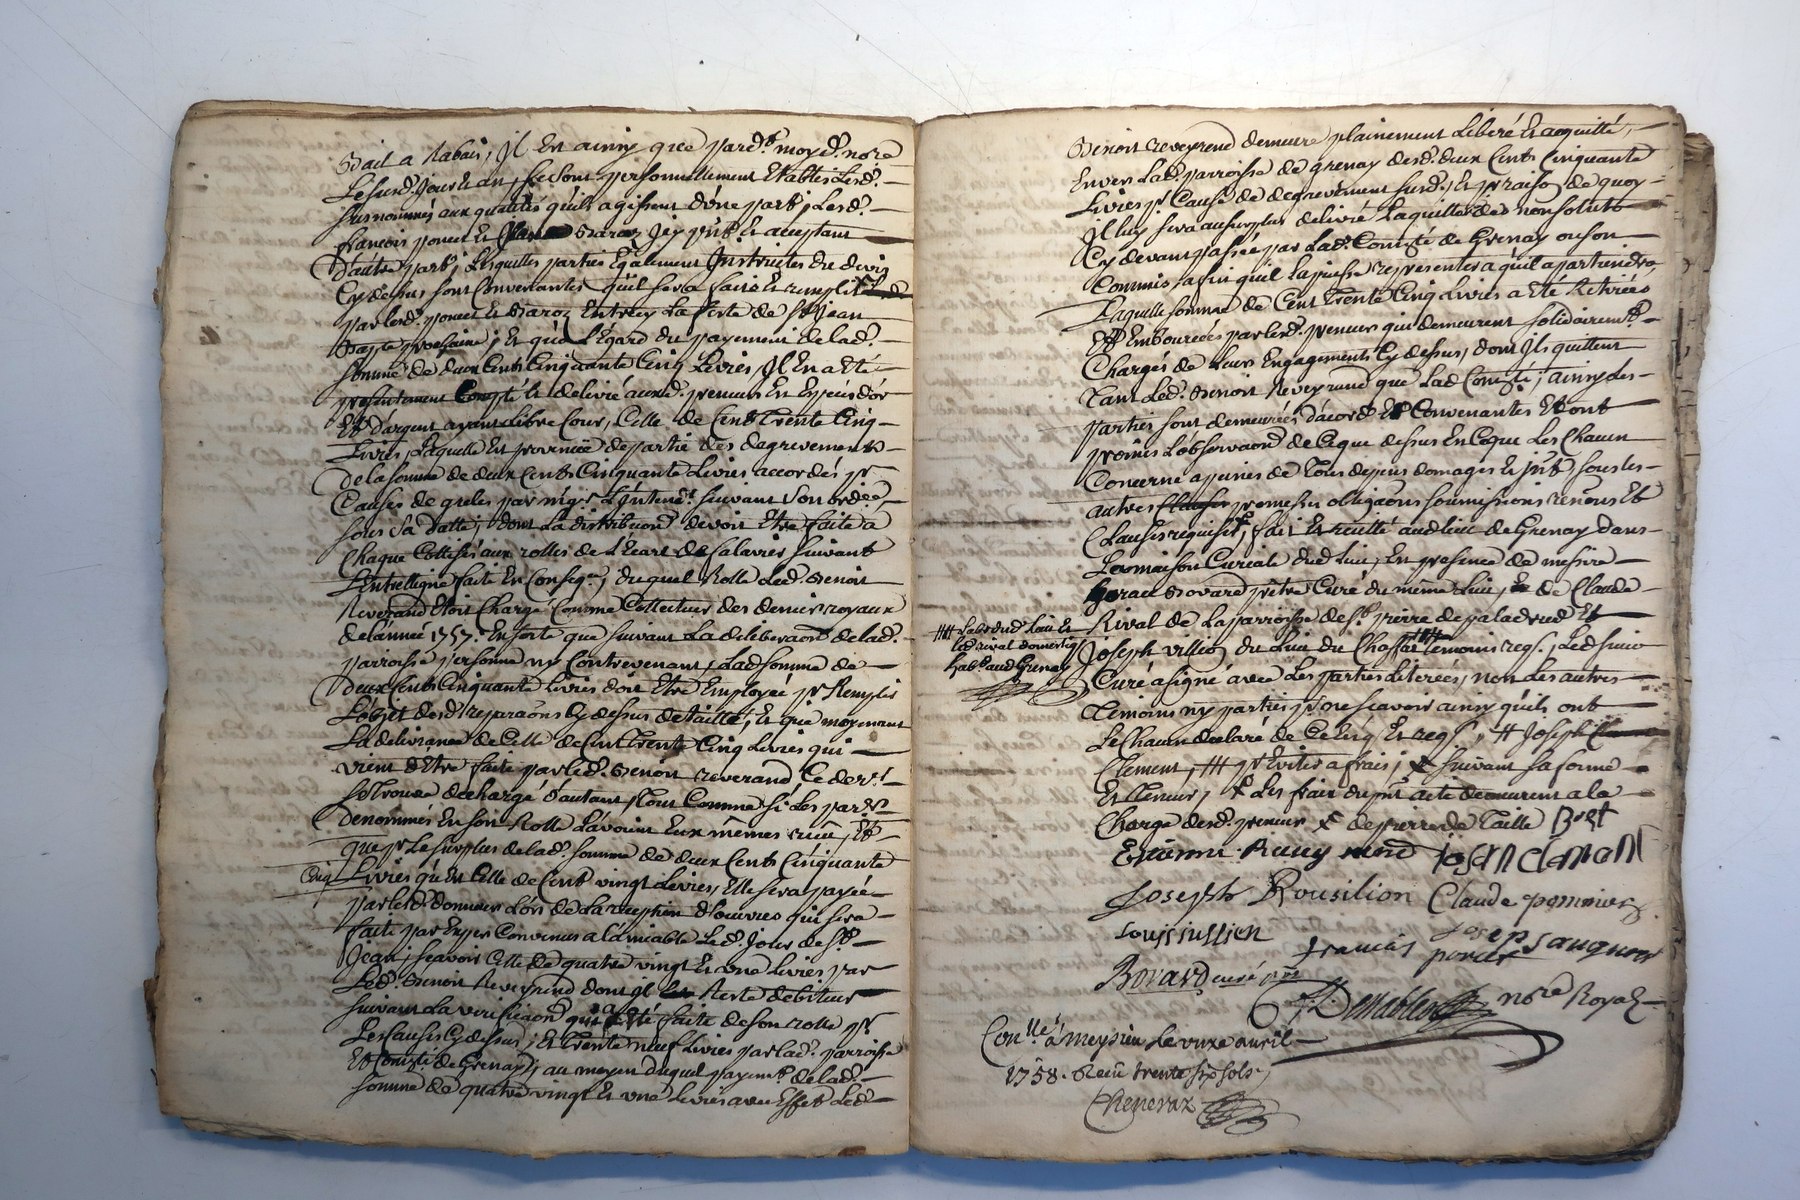 Bail a Rabais, Il En ainsy que pard.t moy d. no.re
Le susd. Jour Et an, se sont personnellement Etablis Lesd.
susnommés aux qualités qu'ils agissent d'une part, Lesd.
francois poncet Et Baroz Icy pñts Et acceptant
D'autre part, Lesquelles parties Egalement Instruites du devis
Cy dessus sont Convenantes qu'il sera faire Et remplir
par lesd. poncet Et Baroz Entre cy La feste de St Jean
Bapte prochaine, Et qu'a L'Egard du payement de lad.
somme de deux Cents Cinquante Cinq Livres, Il En a Eté
presentement Compté Et delivré auxd. preneurs En Espèces d'or
Et D'argent ayant Libre Cour, Celle de Cent Trente Cinq
Livres, Laquelle En provenüe de partie des degrevements
De la somme de deux Cents Cinquante Livres accordés pr
Causes de greles par mgr. L'Intendt. suivant son ordce,
sous sa datte, dont La distribuaon devoit Etre faite a
Chaque Cottisés aux rolles de L'Ecart de salaries suivant
L'Entreligne faite En Conseqce, duquel Rolle Led. Benoit
Reverand Etoit Chargé Comme Collecteur des deniers royaux
de l'année 1757. En sorte que suivant La deliberaon de lad.
parroisse personne ny Contrevenant, Lad. somme de
deux Cents Cinquante Livres doit Etre Employée pr Remplir
L'objet desd. reparaons Cy dessus detaillé, Et que moyenant
La delivrance de Celle de Cent Trente Cinq Livres qui
vient d'Etre faite par led. Benoit reverand Ce der.r
se trouve dechargé d'autant, Tout Comme si Les part.
denommés En son Rolle L'avoient Eux mêmes, Et
que pr Le surplus de lad. somme de deux Cents Cinquante
Cinq Livres qu'Est Celle de Cent vingt Livres, Elle sera payée
par lesd. donneurs Lors de La reception d'oeuvres qui sera
faite par Expers Convenus a L'amiable Led. Jour de St
Jean, scavoir Celle de quatre vingt Et une Livres par
Led. Benoit Reveyrend dont Il Reste debiteur
suivant La verificaon qui a Eté faite de son rolle pr
Les Causes Cy dessus, Et Trente neuf Livres par lad. parroisse
Et Comté de Grenay, au moyen duquel payemt. de lad.
somme de quatre vingt Et une Livres avec Effet Led.
Benoit reveyrend demeure plainement Liberé Et acquitté,
Envers Lad. parroisse de Grenay desd. deux Cents Cinquante
Livres pr Cause de degrevement susd., Et pr raison de quoy
Il luy sera au surplus delivré La quittance des non soluts
Cy devant passée par Lad. Comté de Grenay ou son
Commis, afin qu'il La puisse representer a qu'il apartiendra,
Laquelle somme de Cent Trente Cinq Livres a Eté Retirée
Et Emboursée par lesd. preneurs qui demeurent solidairemt.
Chargés de Leurs Engagements Cy dessus, dont Ils quittent
Tant Led. Benoit Reveyrand que Lad Comté, ainsy Les
parties sont demeurées d'acord Et Convenantes Et ont
promis L'observaon de Ce que dessus En Ce que Les Chacun
Concerne a peines de Tous depens domages Et jnts sous les
autres promesses obligaons soumissions renons Et
Clauses requises, fait Et recitté aud. lieu de Grenay dans
La maison Curiale dud Lieu, En presence de messire
Bovard prêtre Curé du même Lieu, de Claude
Rival de La parroisse de St pierre de paladrud Et
Joseph villioz du Lieu du Chaffat Temoins reqs., Led sieur
#### Labr dud Lieu Et
led rival domestiq
habt aud Grenay
Curé a signé avec Les parties Literées, non Les autres
Temoins ny parties pr ne scavoir ainsy qu'ils ont
Le Chacun declaré de Ce Enq. Et reqs. # Joseph
Clement, ### pr Eviter a frais, x suivant sa forme
Et Teneur, x Les frais du pñt acte demeurent a la
Charge desd. preneurs x de pierre de Taille Bret
Etienne Reveyrend Josep Clemant
Joseph Rousilion Claude pommier
Louis jullien Josep sauquet
francois poncet
Bovard curé pñt
no.re Royal
Conllé a Meysieu le onze avril
1758. Receu trente six sols,
Cheneraz